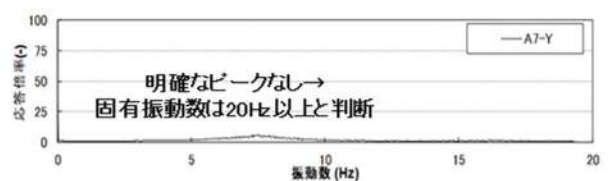 100
75
50
25
0
応答倍率(-)
A7-Y
明確なピークなし→
固有振動数は20Hz以上と判断
0 5 10 15 20
振動数(Hz)